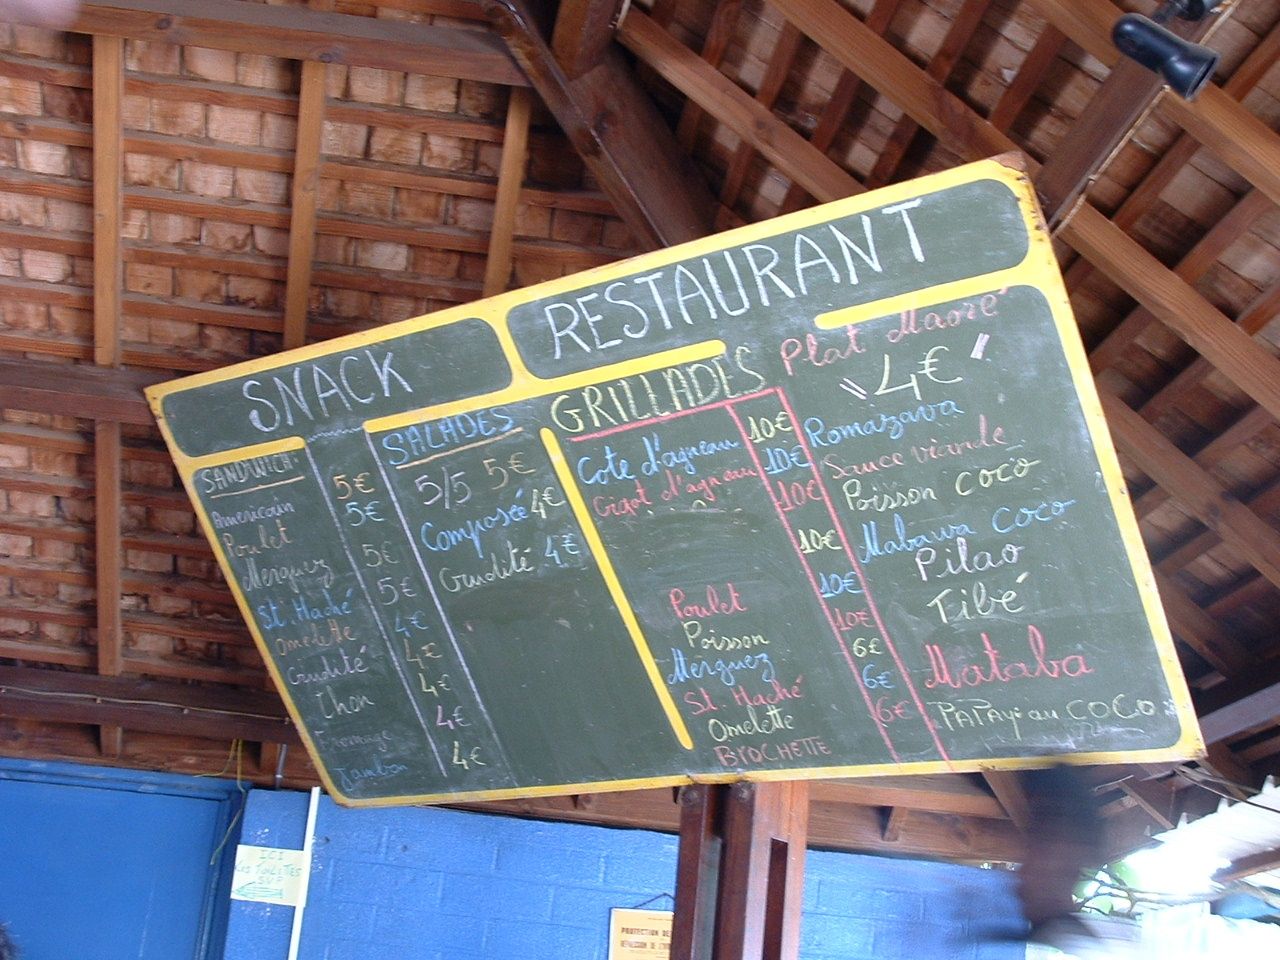 SNACK
RESTAURANT
SANDWICH.
Americain 5€
Poulet 5€
Merguez 5€
St. Haché 5€
Omelette 4€
Crudité 4€
Thon 4€
Fromage 4€
Jambon 4€
SALADES
5/5 5€
Composée 4€
Crudité 4€
GRILLADES
Cote d'agneau 10€
Gigot d'agneau 10€
10€
10€
Poulet 10€
Poisson 10€
Merguez 6€
St. Haché 6€
Omelette 6€
BROCHETTE
Plat Maoré
"4€"
Romazava
Sauce viande
Poisson COCO
Mabawa COCO
Pilao
Tibé
Mataba
PAPAy au COCO
ICI
Les TOILETTES
SVP
PROTECTION DE